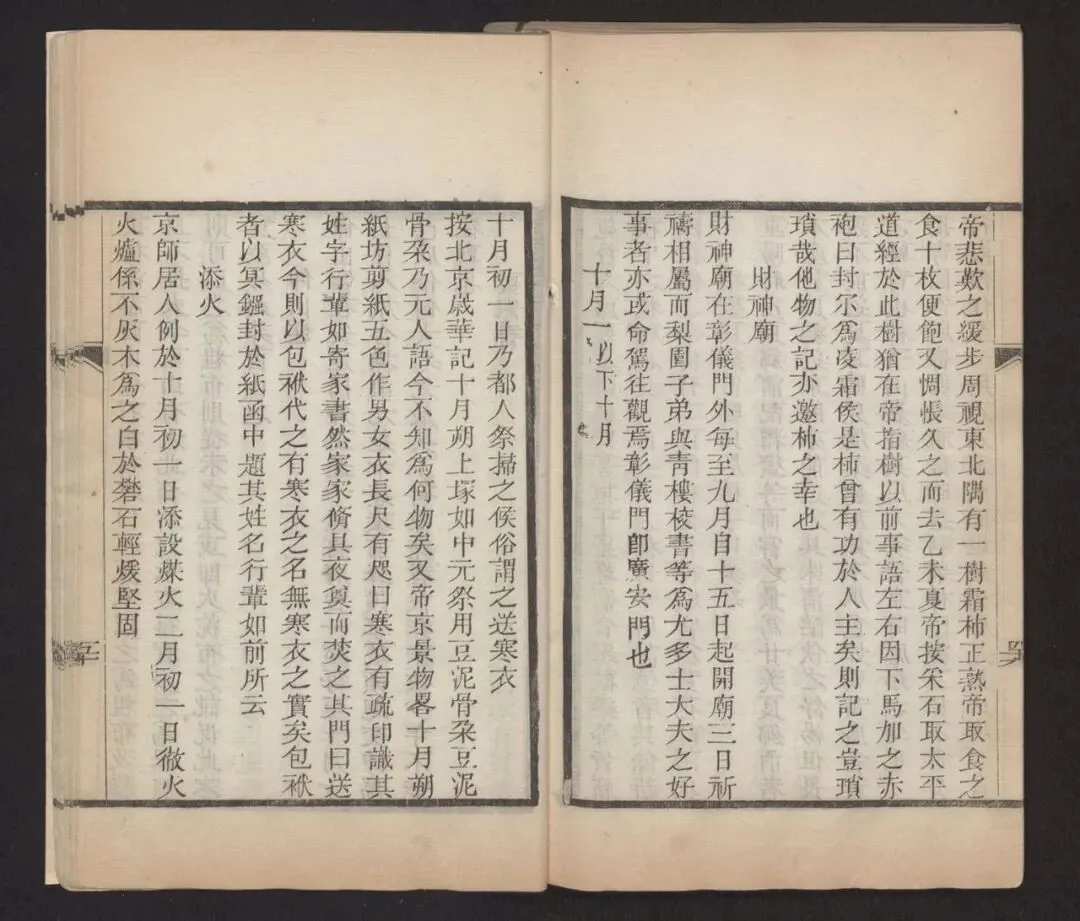 帝悲歎之緩步周視東北隅有一樹霜柿正熟帝取食之
食十枚便飽又惆悵久之而去乙未夏帝按采石取太平
道經於此樹猶在帝指樹以前事語左右因下馬加之赤
袍曰封尔爲凌霜侯是柿曾有功於人主矣則記之豈瑣
瑣哉他物之記亦邀柿之幸也
財神廟
財神廟在彰儀門外每至九月自十五日起開廟三日祈
禱相屬而梨園子弟與青樓校書等爲尤多士大夫之好
事者亦或命駕往觀焉彰儀門卽廣安門也
十月一以下十月
十月初一日乃都人祭掃之候俗謂之送寒衣
按北京歲華記十月朔上塚如中元祭用豆泥骨朶豆泥
骨朶乃元人語今不知爲何物矣又帝京景物畧十月朔
紙坊剪紙五色作男女衣長尺有咫曰寒衣有疏印識其
姓字行輩如寄家書然家家脩具夜奠而焚之其門曰送
寒衣今則以包袱代之有寒衣之名無寒衣之實矣包袱
者以冥鏹封於紙函中題其姓名行輩如前所云
添火
京師居人例於十月初一日添設煤火二月初一日徹火
火爐係不灰木爲之白於礬石輕煖堅固